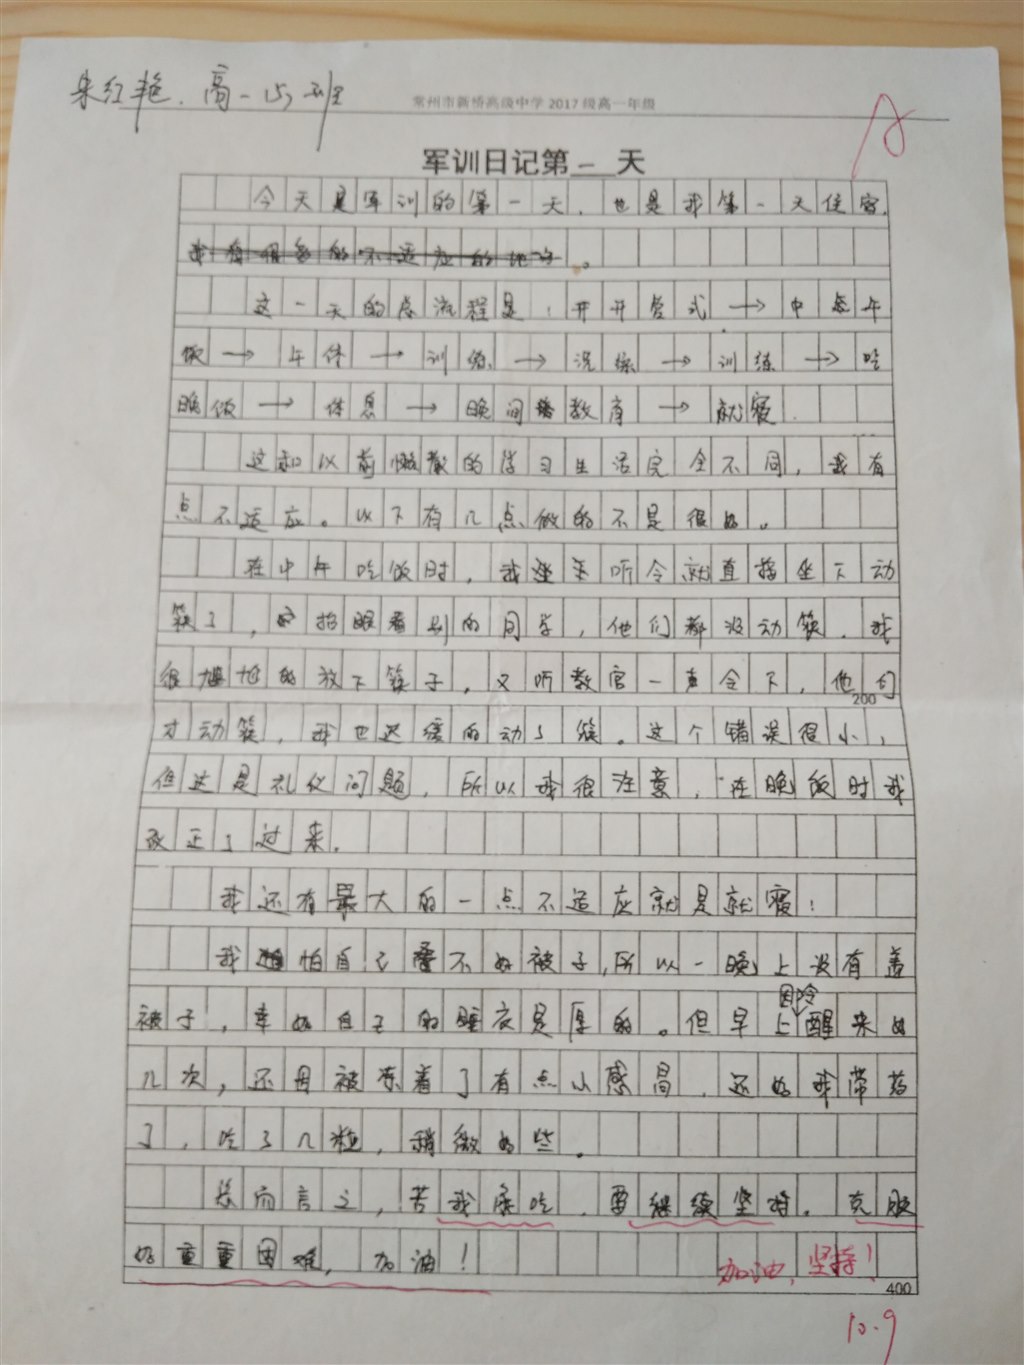 朱红艳.高一(5)班
常州市新桥高级中学2017级高一年级
A
军训日记第一天
今天是军训的第一天,也是我第一天住宿.
我有很多的不适应的地方。
这一天的总流程是:开营式→中午
饭→午休→训练→洗澡→训练→吃
晚饭→休息→晚间教育→就寝.
这和以前懒散的学习生活完全不同,我有
点不适应。以下有几点做的不是很好。
在中午吃饭时,我没听令就直接坐下动
筷了,抬眼看别的同学,他们都没动筷.我
很尴尬的放下筷子,又听教官一声令下,他们
200
才动筷,我也迟缓的动了筷。这个错误很小,
但这是礼仪问题,所以我很注意,在晚饭时我
改正了过来.
我还有最大的一点不适应就是就寝!
我怕自己叠不好被子,所以一晚上没有盖
因冷
被子,幸好自己的睡衣是厚的。但早上醒来好
几次,还因被冻着了有点小感冒,还好我带药
了,吃了几粒,稍微好些.
总而言之,苦我来吃.要继续坚持.克服
好重重困难,加油!
加油,坚持!
400
10.9